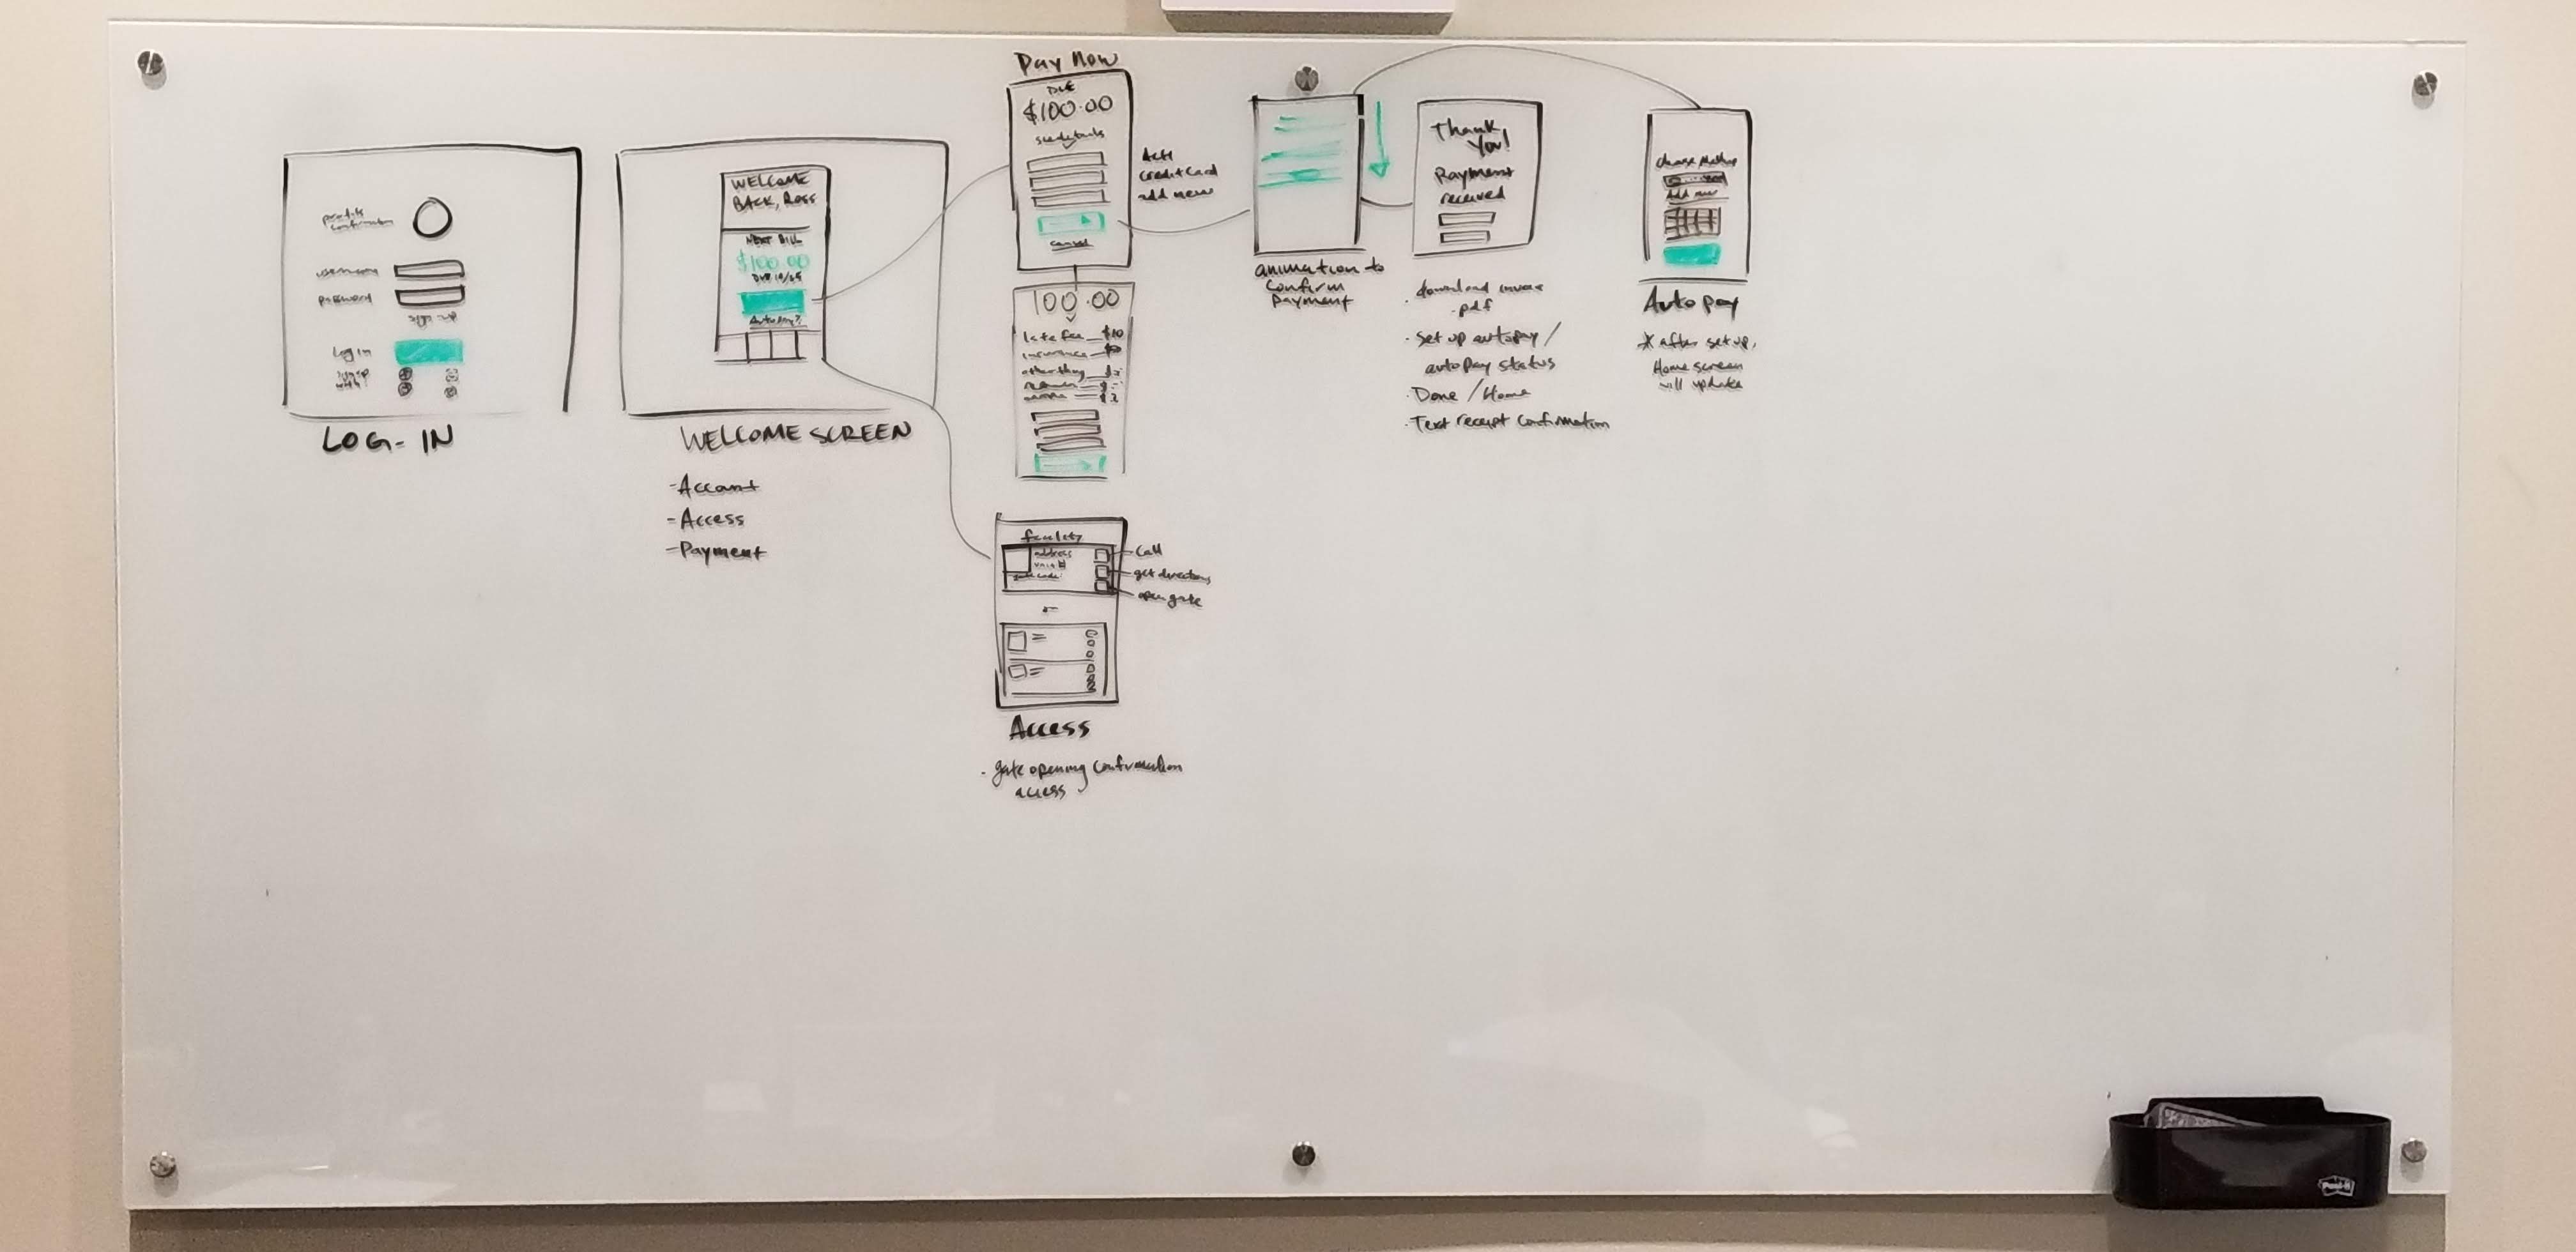 username
password
sign up
Log in
LOG-IN
WELCOME
BACK, ROSS
NEXT BILL
$100.00
DUE 10/25
Autopay?
WELCOME SCREEN
- Account
- Access
- Payment
Pay Now
DUE
$100.00
see details
cancel
ACH
credit card
add new
100.00
late fee $10
insurance
other thing
facility
address
unit #
gate code:
call
get directions
open gate
or
Access
. gate opening confirmation
access
animation to
confirm
payment
Thank
You!
Payment
received
. download invoice
.pdf
. set up autopay /
autopay status
. Done / Home
. Text receipt confirmation
choose method
Add new
Autopay
* after setup,
Home screen
will update
Post-it